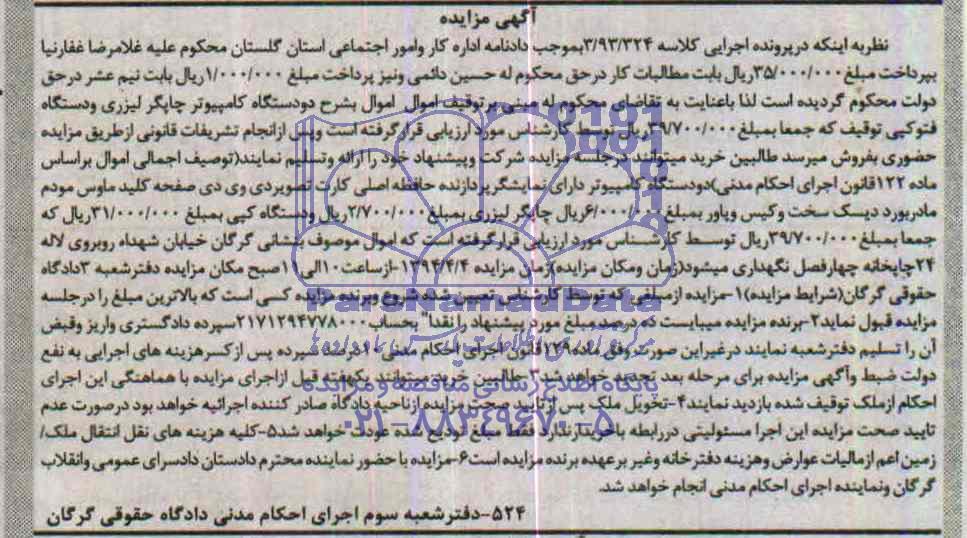 آگهی مزایده
نظر به اینکه در پرونده اجرایی کلاسه ۳/۹۳/۳۲۴ بموجب دادنامه اداره کار و امور اجتماعی استان گلستان محکوم علیه غلامرضا غفارنیا
بپرداخت مبلغ ۳۵/۰۰۰/۰۰۰ ریال بابت مطالبات کار در حق محکوم له حسین دائمی و نیز پرداخت مبلغ ۱/۰۰۰/۰۰۰ ریال بابت نیم عشر در حق
دولت محکوم گردیده است لذا با عنایت به تقاضای محکوم له مبنی بر توقیف اموال اموال بشرح دو دستگاه کامپیوتر چاپگر لیزری و دستگاه
فتوکپی توقیف که جمعا بمبلغ ۳۹/۷۰۰/۰۰۰ ریال توسط کارشناس مورد ارزیابی قرار گرفته است و پس از انجام تشریفات قانونی از طریق مزایده
حضوری بفروش میرسد طالبین خرید میتوانند در جلسه مزایده شرکت و پیشنهاد خود را ارائه و تسلیم نمایند(توصیف اجمالی اموال براساس
ماده ۱۲۲ قانون اجرای احکام مدنی)دو دستگاه کامپیوتر دارای نمایشگر پردازنده حافظه اصلی کارت تصویر دی وی دی صفحه کلید ماوس مودم
مادربورد دیسک سخت و کیس و پاور بمبلغ ۶/۰۰۰/۰۰۰ ریال چاپگر لیزری بمبلغ ۲/۷۰۰/۰۰۰ ریال و دستگاه کپی بمبلغ ۳۱/۰۰۰/۰۰۰ ریال که
جمعا بمبلغ ۳۹/۷۰۰/۰۰۰ ریال توسط کارشناس مورد ارزیابی قرار گرفته است که اموال موصوف بنشانی گرگان خیابان شهداء روبروی لاله
۲۴ چاپخانه چهار فصل نگهداری میشود(زمان و مکان مزایده)زمان مزایده ۱۳۹۴/۴/۴-از ساعت ۱۰ الی ۱۱ صبح مکان مزایده دفتر شعبه ۳ دادگاه
حقوقی گرگان(شرایط مزایده)۱-مزایده از مبلغی که توسط کارشناس تعیین شده شروع و برنده مزایده کسی است که بالاترین مبلغ را در جلسه
مزایده قبول نماید ۲-برنده مزایده میبایست ده درصد مبلغ مورد پیشنهاد را نقدا" بحساب ۲۱۷۱۲۹۴۷۷۸۰۰۰ سپرده دادگستری واریز و قبض
آن را تسلیم دفتر شعبه نمایند در غیر این صورت وفق ماده ۱۲۹ قانون اجرای احکام مدنی ۱۰ درصد سپرده پس از کسر هزینه های اجرایی به نفع
دولت ضبط و آگهی مزایده برای مرحله بعد تجدید خواهد شد ۳-طالبین خرید میتوانند یکهفته قبل از اجرای مزایده با هماهنگی این اجرای
احکام از ملک توقیف شده بازدید نمایند ۴-تحویل ملک پس از تایید صحت مزایده از ناحیه دادگاه صادر کننده اجرائیه خواهد بود در صورت عدم
تایید صحت مزایده این اجرا مسئولیتی در رابطه با خریدار ندارد فقط مبلغ تودیع شده عودت خواهد شد ۵-کلیه هزینه های نقل انتقال ملک/
زمین اعم از مالیات عوارض و هزینه دفترخانه و غیر بر عهده برنده مزایده است ۶-مزایده با حضور نماینده محترم دادستان دادسرای عمومی و انقلاب
گرگان و نماینده اجرای احکام مدنی انجام خواهد شد.
۵۲۴-دفتر شعبه سوم اجرای احکام مدنی دادگاه حقوقی گرگان
ParsNamadData
پایگاه اطلاع رسانی مناقصه و مزایده
۰۲۱-۸۸۳۴۹۶۷۰-۵